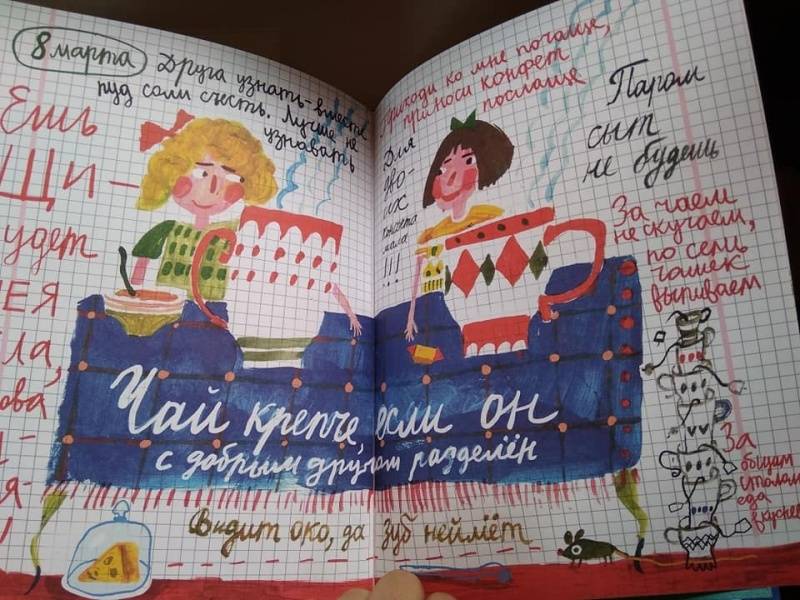 8 марта
Друга узнать – вместе
пуд соли съесть. Лучше не
узнавать
Ешь
Щи –
удет
ЕЯ
ла,
ова
Приходи ко мне почаще,
приноси конфет
послаще
Для
дво-
их
мала
!!!
Паром
сыт
не будешь
За чаем
не скучаем,
по семь
чашек
выпиваем
Чай крепче, если он
с добрым другом разделён
Видит око, да зуб неймёт
За
общим
столом
еда
вкуснее